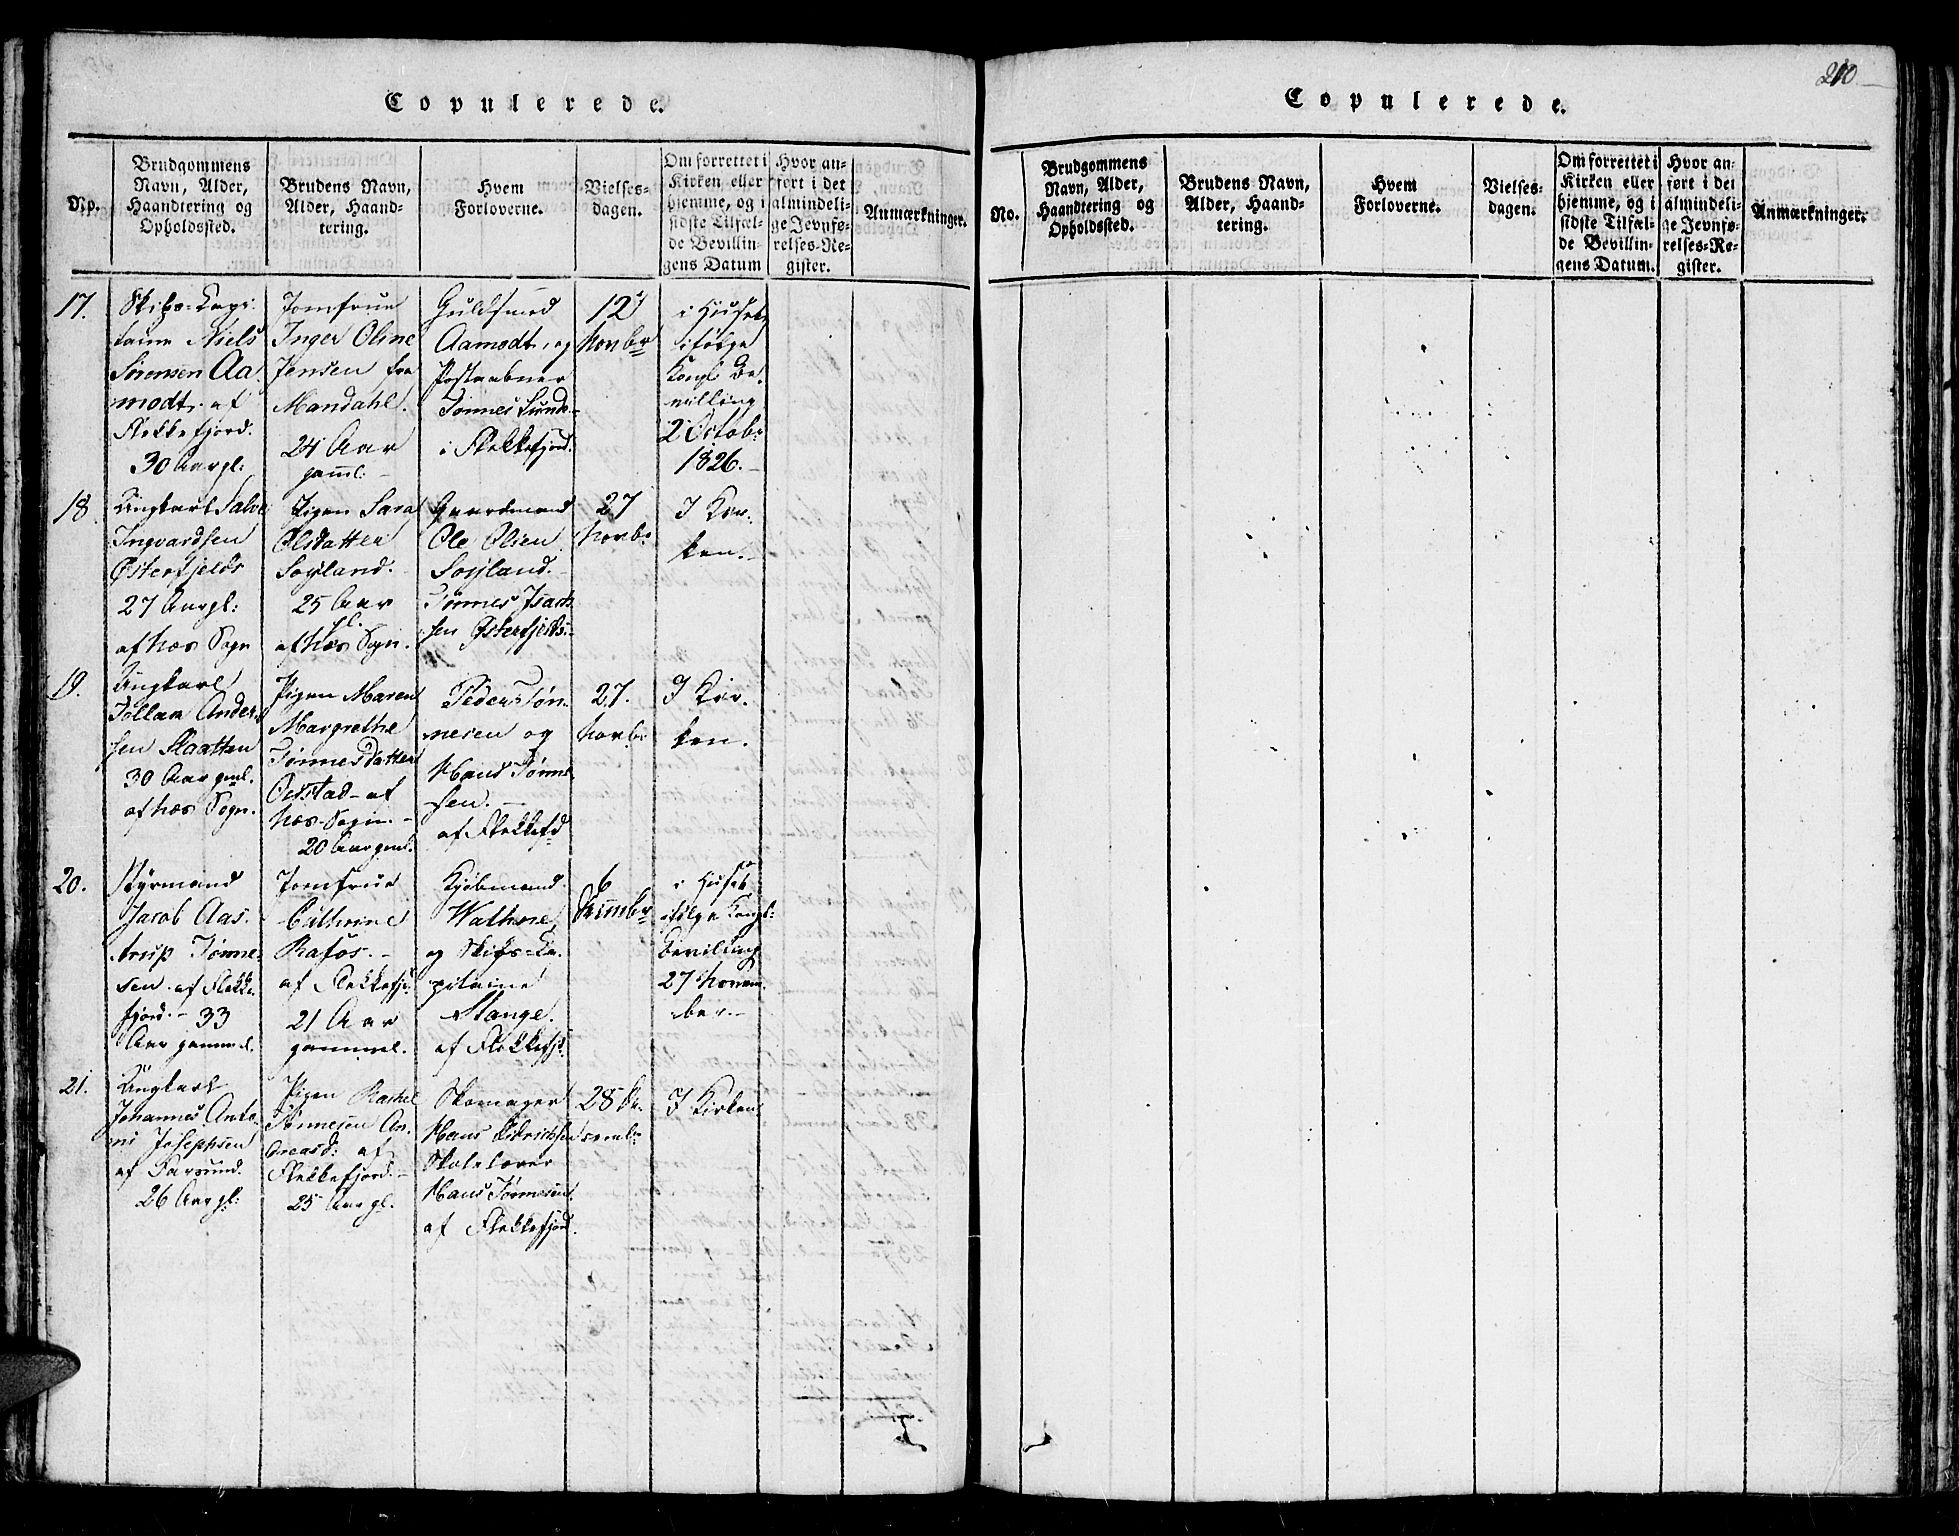 Copulerede.
No.
Brudgommens
Navn, Alder,
Haandtering og
Opholdssted.
Brudens Navn,
Alder, Haand-
tering.
Hvem
Forloverne.
Vielses-
dagen.
Om forrettet i
Kirken eller
hjemme, og i
sidste Tilfæl-
de Bevillin-
gens Datum
Hvor an-
ført i det
almindeli-
ge Jevnfø-
relses-Re-
gister.
Anmærkninger.
17.
Skibs-Capi-
taine Niels
Sørensen Aa
modt. af
Flekkefjord.
30 Aar gl:
Jomfrue
Inger Oline
Jensen fra
Mandahl.
24 Aar
gaml.
Guldsmed
Aamodt, og
Postaabner
Tønnes Sunde
i Flekkefjord.
12
Novbr
i Huset
ifølge
Kongl Be-
villing
2 Octobr
1826.
18
Ungkarl Salve
Ingvardsen
Østerfjelds
27 Aar gl:
af hæs Sogn
Pigen Sara
Olsdatter
Soyland.
25 Aar
gl.
af hæs Sogn.
Gaardmand
Ole Olsen
Soyland.
Tønnes Isach
sen Østerfjelds.
27
Novbr
I Kir-
ken.
19.
Ungkarl
Tollam Ander-
sen Staatten
30 Aar gml.
af hæs Sogn.
Pigen Maren
Margrethe
Tønnesdatter
Oestad af
hæs Sogn.
20 Aar gml.
Peder Tøn-
nesen og
Hans Tønne-
sen.
af Flekkefd
27.
Novbr
I Kir-
ken.
20.
Styrmand
Jacob Aas-
trup Tønne-
sen. af Flekke-
fjord. - 33
Aar gammel.
Jomfrue
Cathrine
Rafos.
af Flekkefj:
21 Aar
gammel.
Kjøbmand
Wathne
og Skibs-Ca-
pitaine
Stange.
af Flekkefj:
6
Decembr
i Huset
ifølge Kongl:
Bevilling
27 Novem-
ber.
21.
Ungkarl
Johannes Anto-
ni Josephsen
af Farsund.
26 Aar gl:
Pigen Rachel
Tønnesen An-
dreasd: af
Flekkefjord.
25 Aar gl.
Skomager
Hans Didrichsen
Skolelærer
Hans Tønnesen
af Flekkefjord.
28 De-
cembr
I Kirken.
210
Copulerede.
No.
Brudgommens
Navn, Alder,
Haandtering og
Opholdssted.
Brudens Navn,
Alder, Haand-
tering.
Hvem
Forloverne.
Vielses-
dagen.
Om forrettet i
Kirken eller
hjemme, og i
sidste Tilfæl-
de Bevillin-
gens Datum.
Hvor an-
ført i det
almindeli-
ge Jevnfø-
relses-Re-
gister.
Anmærkninger.